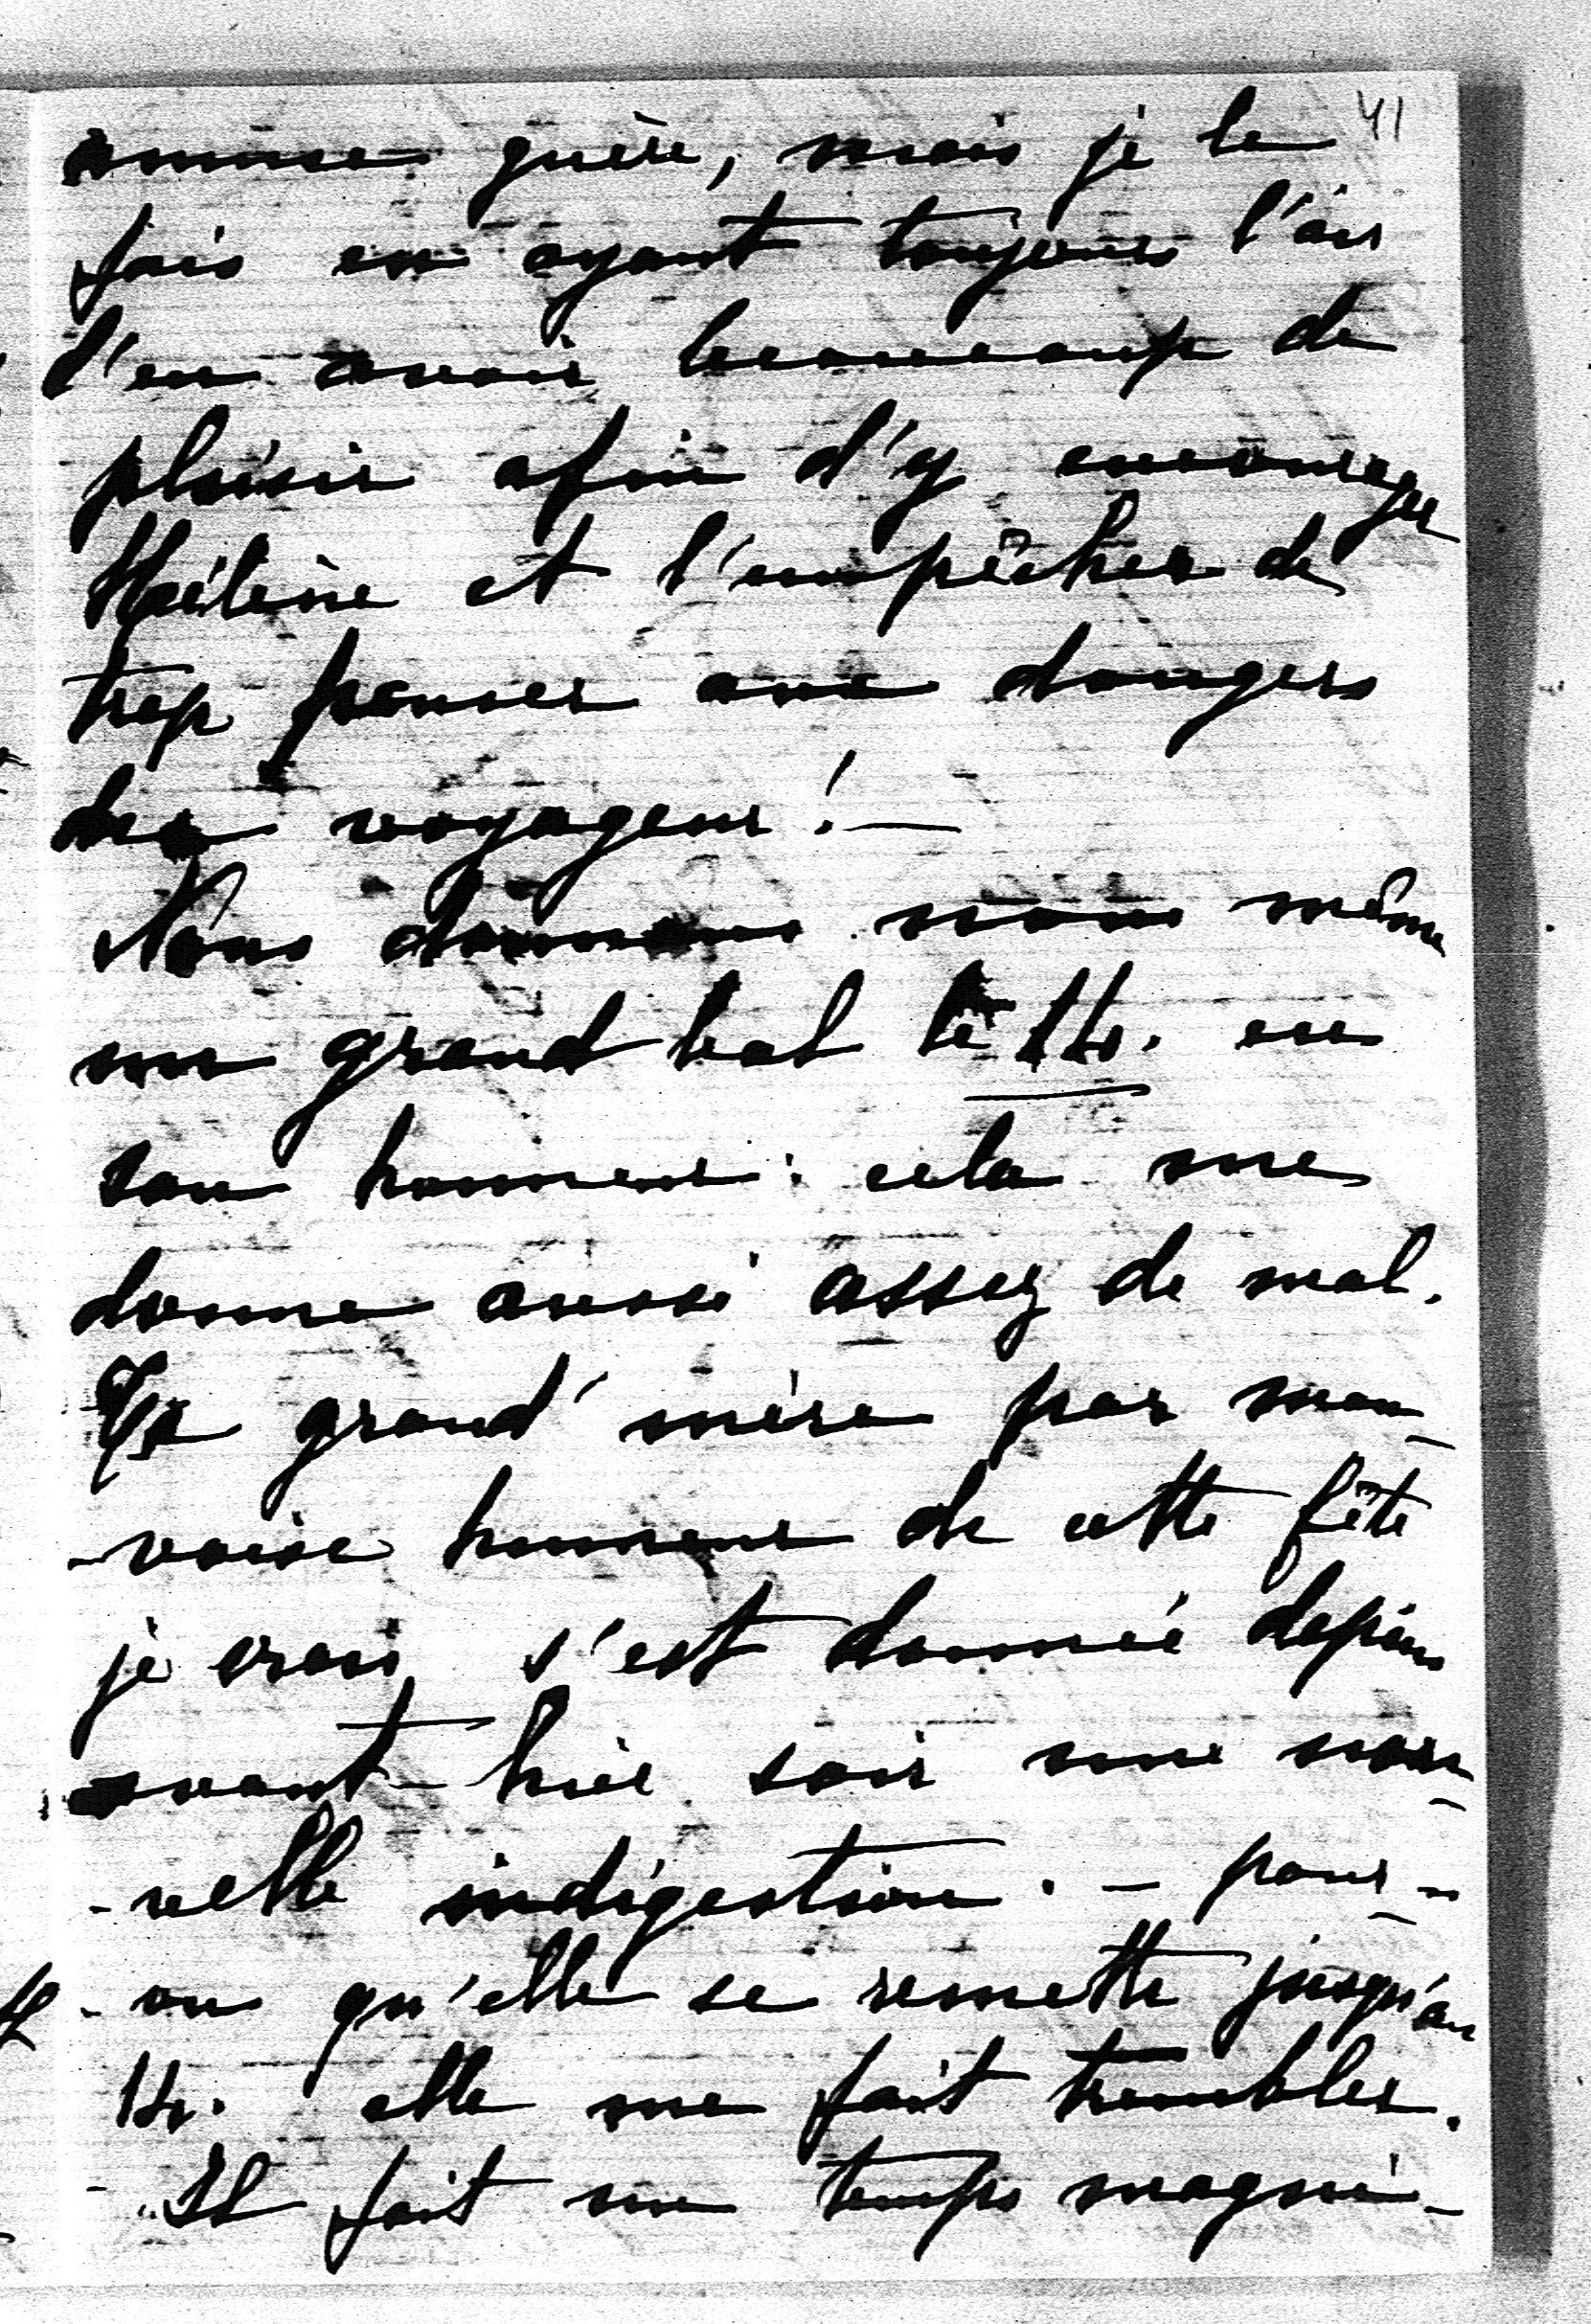 41
amuse guère, mais je le
fais en ayant toujours l'air
d'en avoir beaucoup de
plaisir afin d'y encourager
Hélène et l'empêcher de
trop penser aux dangers
des voyageurs! —
Nous donnons nous même
un grand bal le 14. en
son honneur: cela me
donne aussi assez de mal.
Ta grand' mère par mau-
-vaise humeur de cette fête
je crois s'est donnée depuis
avant-hier soir une nou-
-velle indigestion. — pour-
-vu qu'elle se remette jusqu'au
14. elle me fait trembler.
Il fait un temps magni-